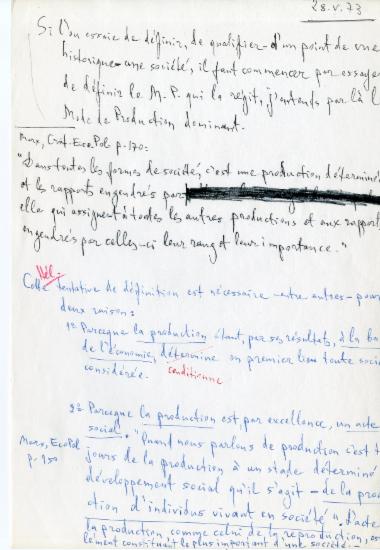 28.V.73
Si l'on essaie de définir, de qualifier – d'un point de vue
historique – une société, il faut commencer par essaye
de définir le M.P. qui la régit, j'entends par là l
Mode de Production dominant.
Marx, Crit. Eco. Pol. p. 170:
"Dans toutes les formes de société, c'est une production déterminé
et les rapports engendrés par
elle qui assignent à toutes les autres productions et aux rapport
engendrés par celles-ci leur rang et leur importance."
Cette tentative de définition est nécessaire – entre autres – pour
deux raisons:
1º Parceque la production étant, par ses résultats, à la ba
de l'économie, détermine en premier lieu toute socié
conditionne
considérée.
2º Parceque la production est, par excellence, un acte
social. "Quand nous parlons de production c'est t
Marx, Eco Pol
jours de la production à un stade déterminé
p. 150
développement social qu'il s'agit – de la prod
ction d'individus vivant en société". L'acte
la production comme celui de la reproduction,
lément constituant le plus important d'une société.